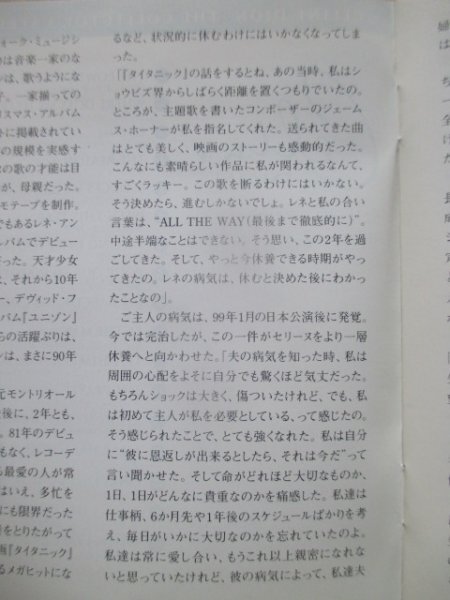 ォーク・ミュージシ
は音楽一家のな
は、歌うようにな
子。一家揃っての
リスマス・アルバム
トに掲載されてい
の規模を実感す
の歌の才能は目
が、母親だった。
モテープを制作。
でもあるレネ・アン
バムでデビュー
った。天才少女
は、それから10年
ー、デヴィッド・フ
バム『ユニゾン』
らの活躍ぶりは、
ンは、まさに90年
元モントリオール
後に、2年とも、
。81年のデビュ
もなく、レコーデ
る最愛の人が常
はいえ、多忙を
にも限界だった
をとりたがって
画『タイタニック』
るメガヒットにな
るなど、状況的に休むわけにはいかなくなってしま
った。
「『タイタニック』の話をするとね、あの当時、私はシ
ョウビズ界からしばらく距離を置くつもりでいたの。
ところが、主題歌を書いたコンポーザーのジェーム
ス・ホーナーが私を指名してくれた。送られてきた曲
はとても美しく、映画のストーリーも感動的だった。
こんなにも素晴らしい作品に私が関われるなんて、
すごくラッキー。この歌を断るわけにはいかない。
そう決めたら、進むしかないでしょ。レネと私の合い
言葉は、“ALL THE WAY（最後まで徹底的に）”。
中途半端なことはできない。そう思い、この2年を過
ごしてきた。そして、やっと今休養できる時期がやっ
てきたの。レネの病気は、休むと決めた後にわかっ
たことなの」。
ご主人の病気は、99年1月の日本公演後に発覚。
今では完治したが、この一件がセリーヌをより一層
休養へと向かわせた。「夫の病気を知った時、私は
周囲の心配をよそに自分でも驚くほど気丈だった。
もちろんショックは大きく、傷ついたけれど、でも、私
は初めて主人が私を必要としている、って感じたの。
そう感じられたことで、とても強くなれた。私は自分
に“彼に恩返しが出来るとしたら、それは今だ”って
言い聞かせた。そして命がどれほど大切なものか、
1日、1日がどんなに貴重なのかを痛感した。私達は
仕事柄、6か月先や1年後のスケジュールばかりを考
え、毎日がいかに大切なのかを忘れていたのよ。
私達は常に愛し合い、もうこれ以上親密になれな
いと思っていたけれど、彼の病気によって、私達夫